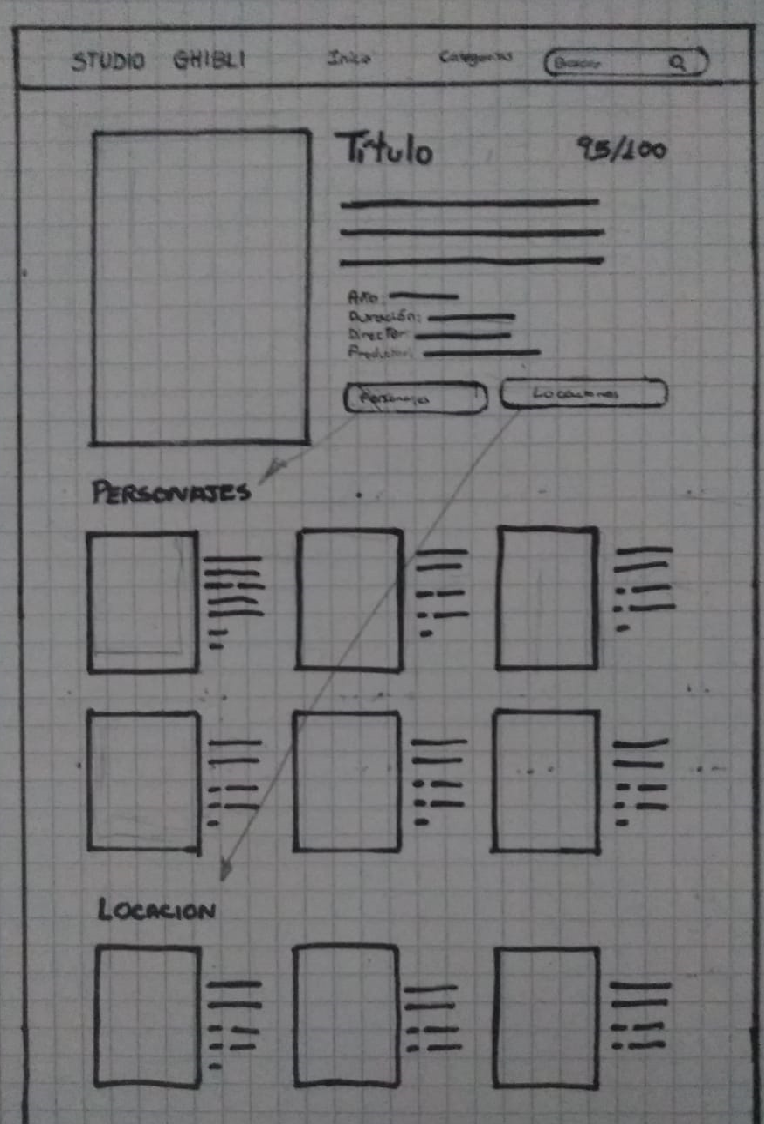 STUDIO GHIBLI Inicio Categorias Buscar
Título 95/100
Año:
Duración:
Director:
Productor:
Personajes Locaciones
PERSONAJES
LOCACION